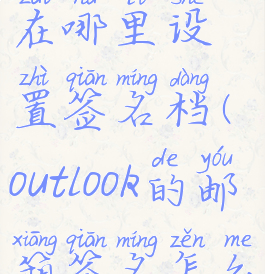 zài nǎ lǐ shè
在哪里设
zhì qiān míng dàng
置签名档(
de yóu
outlook的邮
xiāng qiān míng zěn me
箱签名怎么